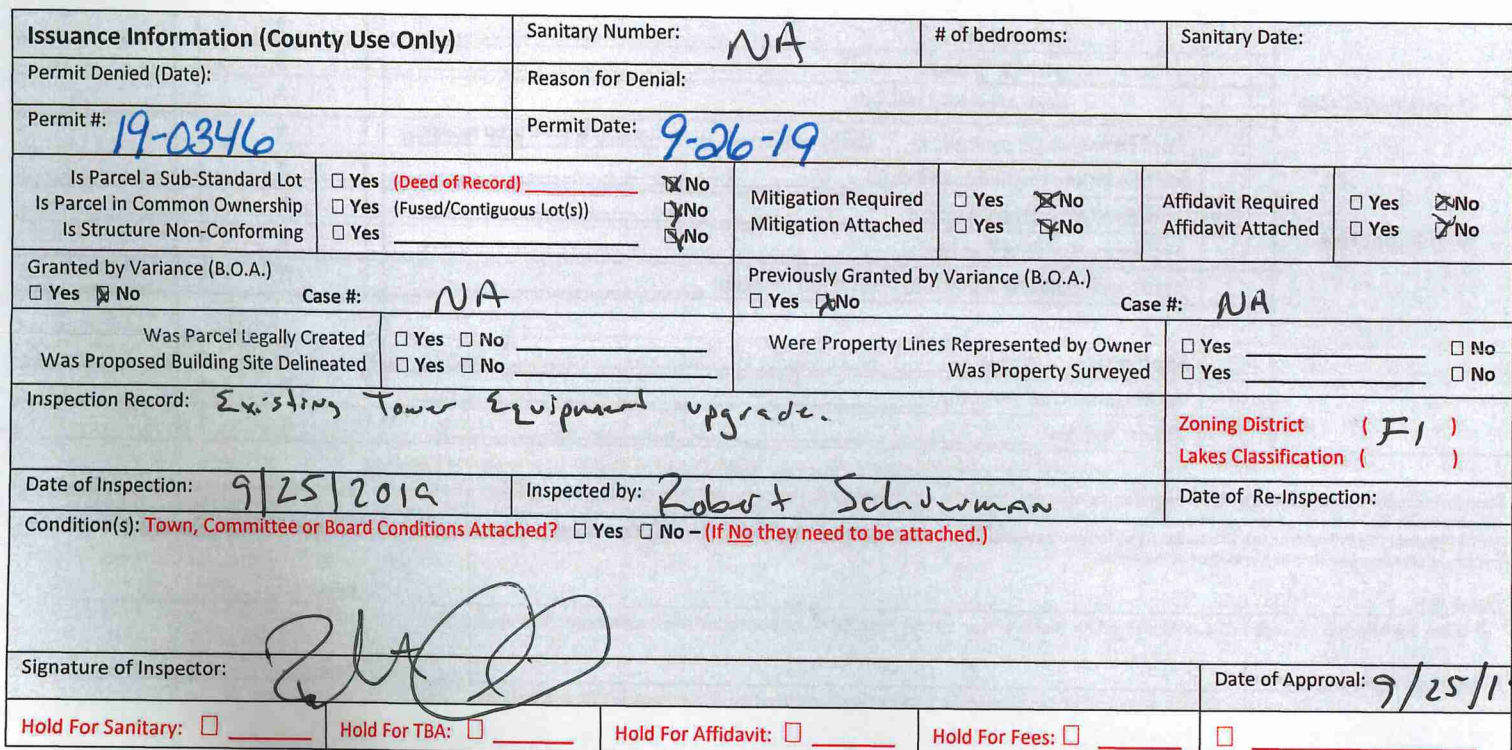 Issuance Information (County Use Only) Sanitary Number: NA # of bedrooms: Sanitary Date:
Permit Denied (Date): Reason for Denial:
Permit #: 19-0346 Permit Date: 9-26-19
Is Parcel a Sub-Standard Lot ☐ Yes (Deed of Record) ☒ No
Is Parcel in Common Ownership ☐ Yes (Fused/Contiguous Lot(s)) ☒ No
Is Structure Non-Conforming ☐ Yes ☒ No
Mitigation Required ☐ Yes ☒ No
Mitigation Attached ☐ Yes ☒ No
Affidavit Required ☐ Yes ☒ No
Affidavit Attached ☐ Yes ☒ No
Granted by Variance (B.O.A.)
☐ Yes ☒ No Case #: NA
Previously Granted by Variance (B.O.A.)
☐ Yes ☒ No Case #: NA
Was Parcel Legally Created ☐ Yes ☐ No
Was Proposed Building Site Delineated ☐ Yes ☐ No
Were Property Lines Represented by Owner ☐ Yes ☐ No
Was Property Surveyed ☐ Yes ☐ No
Inspection Record: Existing Tower Equipment upgrade.
Zoning District ( F1 )
Lakes Classification ( )
Date of Inspection: 9/25/2019 Inspected by: Robert Schierman Date of Re-Inspection:
Condition(s): Town, Committee or Board Conditions Attached? ☐ Yes ☐ No – (If No they need to be attached.)
Signature of Inspector: Date of Approval: 9/25/19
Hold For Sanitary: ☐ Hold For TBA: ☐ Hold For Affidavit: ☐ Hold For Fees: ☐ ☐